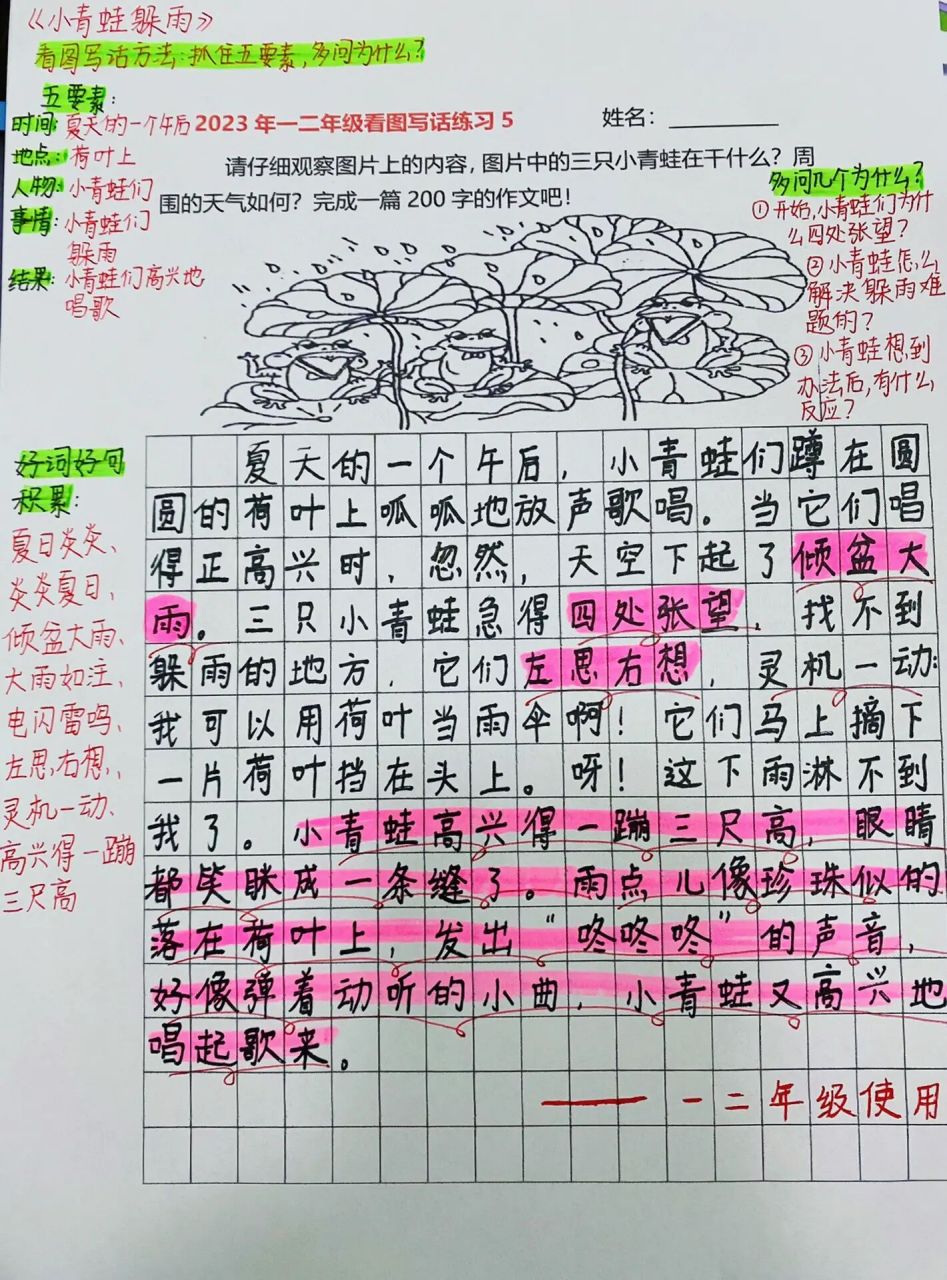 《小青蛙躲雨》
看图写话方法:抓住五要素,多问为什么?
五要素:
时间:夏天的一个午后
地点:荷叶上
人物:小青蛙们
事情:小青蛙们
躲雨
结果:小青蛙们高兴地
唱歌
2023年一二年级看图写话练习5
姓名:
请仔细观察图片上的内容,图片中的三只小青蛙在干什么?周
围的天气如何?完成一篇200字的作文吧!
多问几个为什么?
①开始,小青蛙们为什
么四处张望?
②小青蛙怎么
解决躲雨难
题的?
③小青蛙想到
办法后,有什么
反应?
好词好句
积累:
夏日炎炎、
炎炎夏日、
倾盆大雨、
大雨如注、
电闪雷鸣、
左思右想、
灵机一动、
高兴得一蹦
三尺高
夏天的一个午后,小青蛙们蹲在圆
圆的荷叶上呱呱地放声歌唱。当它们唱
得正高兴时,忽然,天空下起了倾盆大
雨。三只小青蛙急得四处张望,找不到
躲雨的地方,它们左思右想,灵机一动:
我可以用荷叶当雨伞啊!它们马上摘下
一片荷叶挡在头上。呀!这下雨淋不到
我了。小青蛙高兴得一蹦三尺高,眼睛
都笑眯成一条缝了。雨点儿像珍珠似的
落在荷叶上,发出“咚咚咚”的声音,
好像弹着动听的小曲,小青蛙又高兴地
唱起歌来。
——一二年级使用